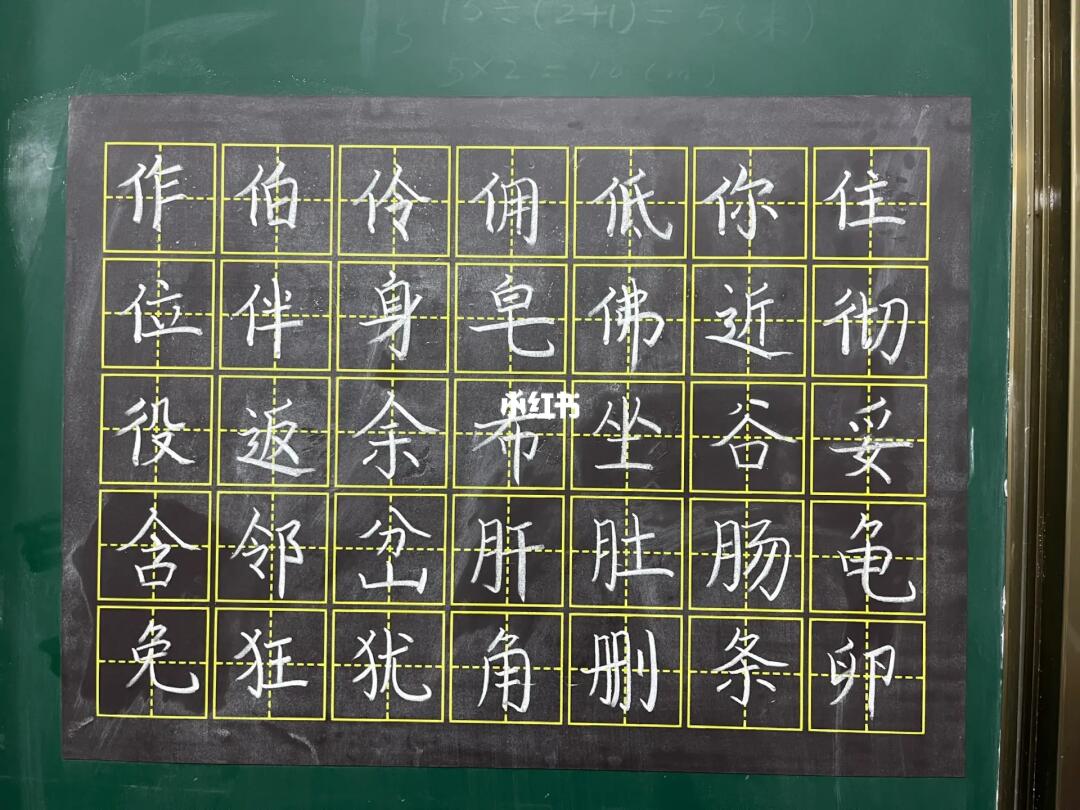 15÷(2+1)=5(米)
5×2=10(m)
作伯伶佣低你住
位伴身皂佛近彻
役返余希坐谷妥
小红书
含邻岔肝肚肠龟
兔狂犹角删条卵